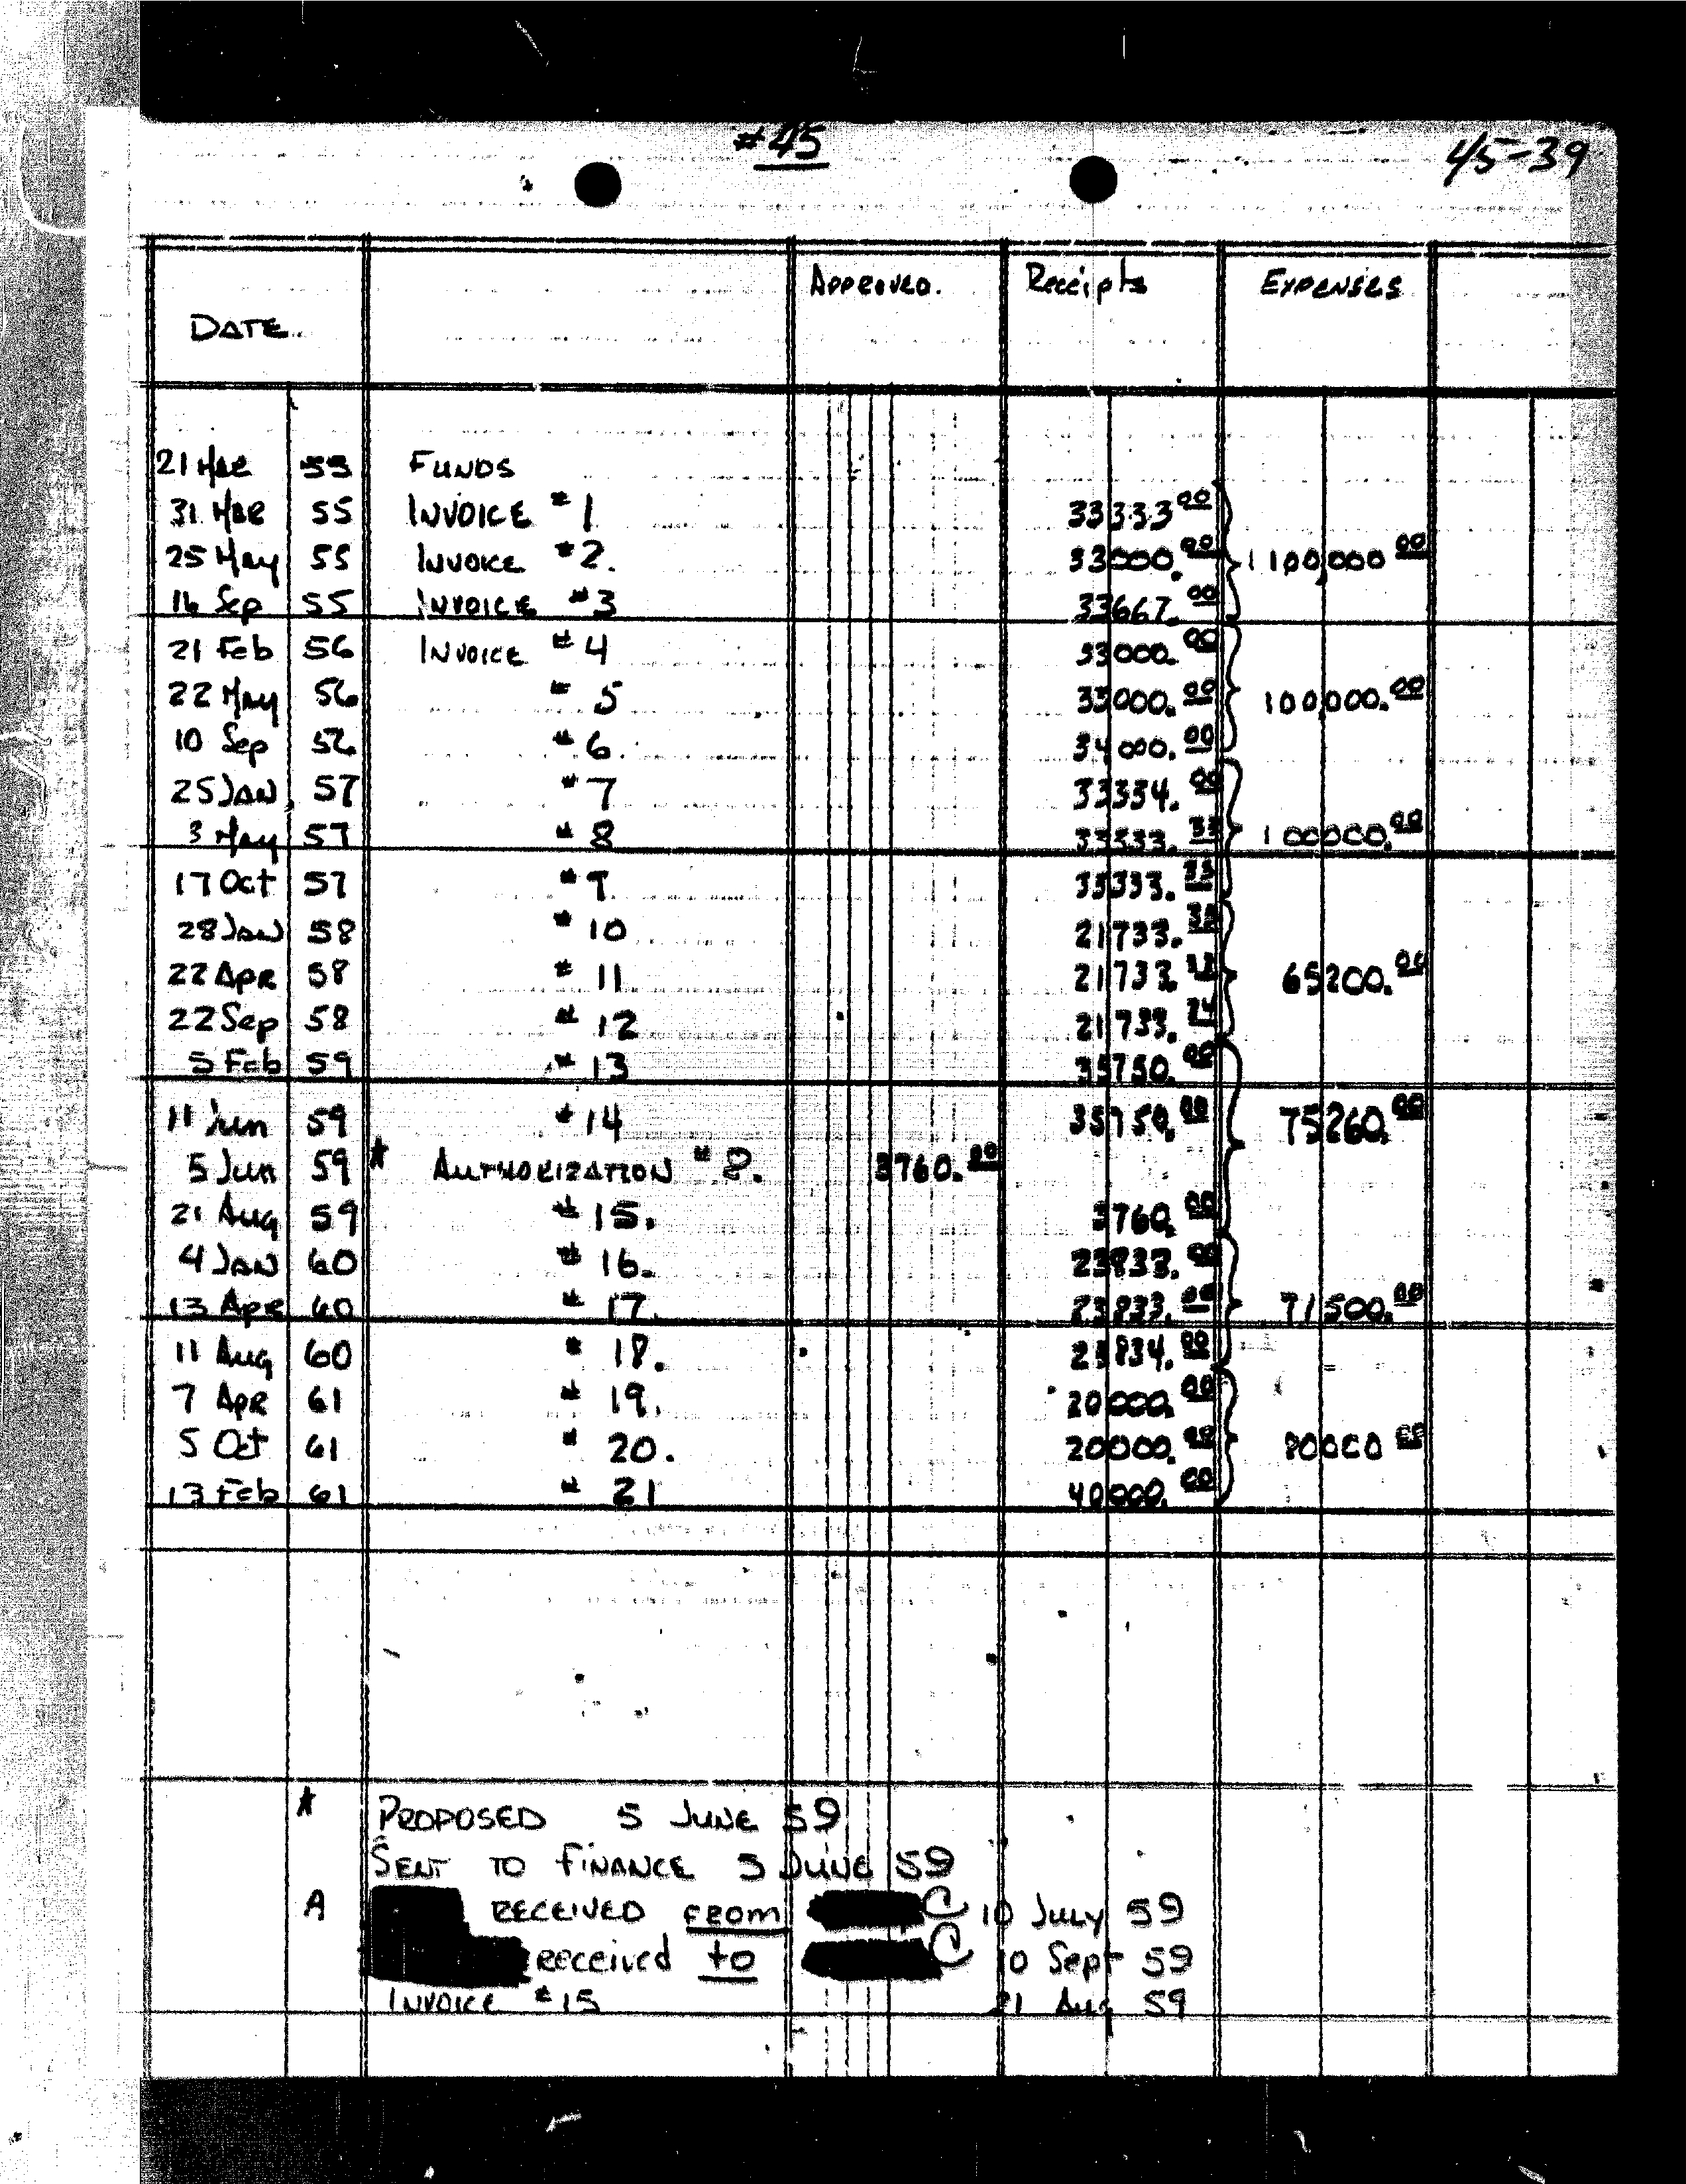 #45
45-39
DATE. APPROVED. Receipts EXPENSES
21 MAR 55 FUNDS
31 MAR 55 INVOICE #1 33333 00
25 May 55 INVOICE #2. 33000. 00 100,000 00
16 Sep 55 INVOICE #3 33667. 00
21 Feb 56 INVOICE #4 33000. 00
22 May 56 #5 33000. 00 100,000. 00
10 Sep 56 #6. 34000. 00
25 JAN 57 #7 33334. 00
3 May 57 #8 33333. 33 100000. 00
17 Oct 57 #9 33333. 33
28 JAN 58 #10 21733. 33
22 APR 58 #11 21733. 33 65200. 00
22 Sep 58 #12 21733. 34
5 Feb 59 #13 35750. 00
11 Jun 59 #14 35750. 00 75260. 00
5 Jun 59 * AUTHORIZATION #8. 3760. 00
21 Aug 59 #15. 3760. 00
4 JAN 60 #16. 23833. 00
13 APR 60 #17. 23833. 00 71500. 00
11 Aug 60 #18. 23834. 00
7 APR 61 #19. 20000. 00
5 Oct 61 #20. 20000. 00 80000 00
13 Feb 61 #21 40000. 00
* PROPOSED 5 JUNE 59
SENT TO FINANCE 5 JUNE 59
A RECEIVED FROM C 10 JULY 59
Received to C 10 Sept 59
INVOICE #15 21 Aug 59